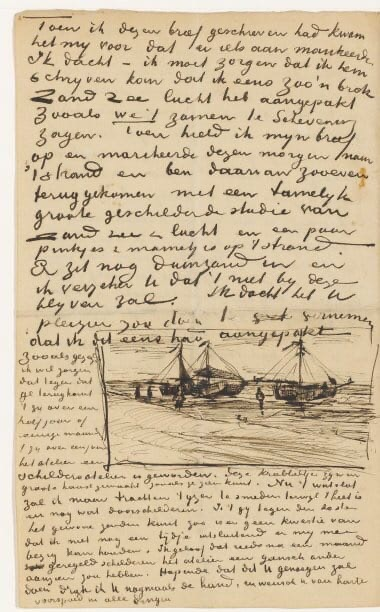 Toen ik dezen brief geschreven had kwam
het my voor dat er iets aan mankeerde.
Ik dacht – ik moet zorgen dat ik hem
schryven kan dat ik eens zoo'n brok
zand zee lucht heb aangepakt
zooals we t zamen te Schevening
zagen. Toen hield ik myn brief
op en marcheerde dezen morgen naar
't strand en ben daarvan zooeven
teruggekomen met een tamelyk
groote geschilderde studie van
zand zee & lucht en een paar
pinkjes & mannetjes op 't strand.
Er zit nog duinzand in en
ik verzeker U dat 't niet by deze
blyven zal. Ik dacht het U
plezier zou doen te vernemen
dat ik dit eens had aangepakt
Zooals gezegd
ik wil zorgen
dat tegen dat
gy terugkomt
't zy over een
half jaar of
eenige maand
't zy over een jaar
het atelier een
schildersatelier is geworden. Deze krabbeltjes zyn in
groote haast gemaakt zooals ge zien kunt. Nu 't wat vlot
zal ik maar trachten 't yzer te smeden terwyl 't heet is
en nog wat doorschilderen. Is 't gy tegen den
het gewone zenden kunt zoo is er geen kwestie van
dat ik niet nog een tydje uitsluitend er my mee
bezig kan houden. Ik geloof dat reeds na een maand
geregeld schilderen het atelier een gansch ander
aanzien zou hebben. Hopende dat dit U genoegen zal
doen druk ik U nogmaals de hand, en wensch U van harte
voorspoed in alle dingen